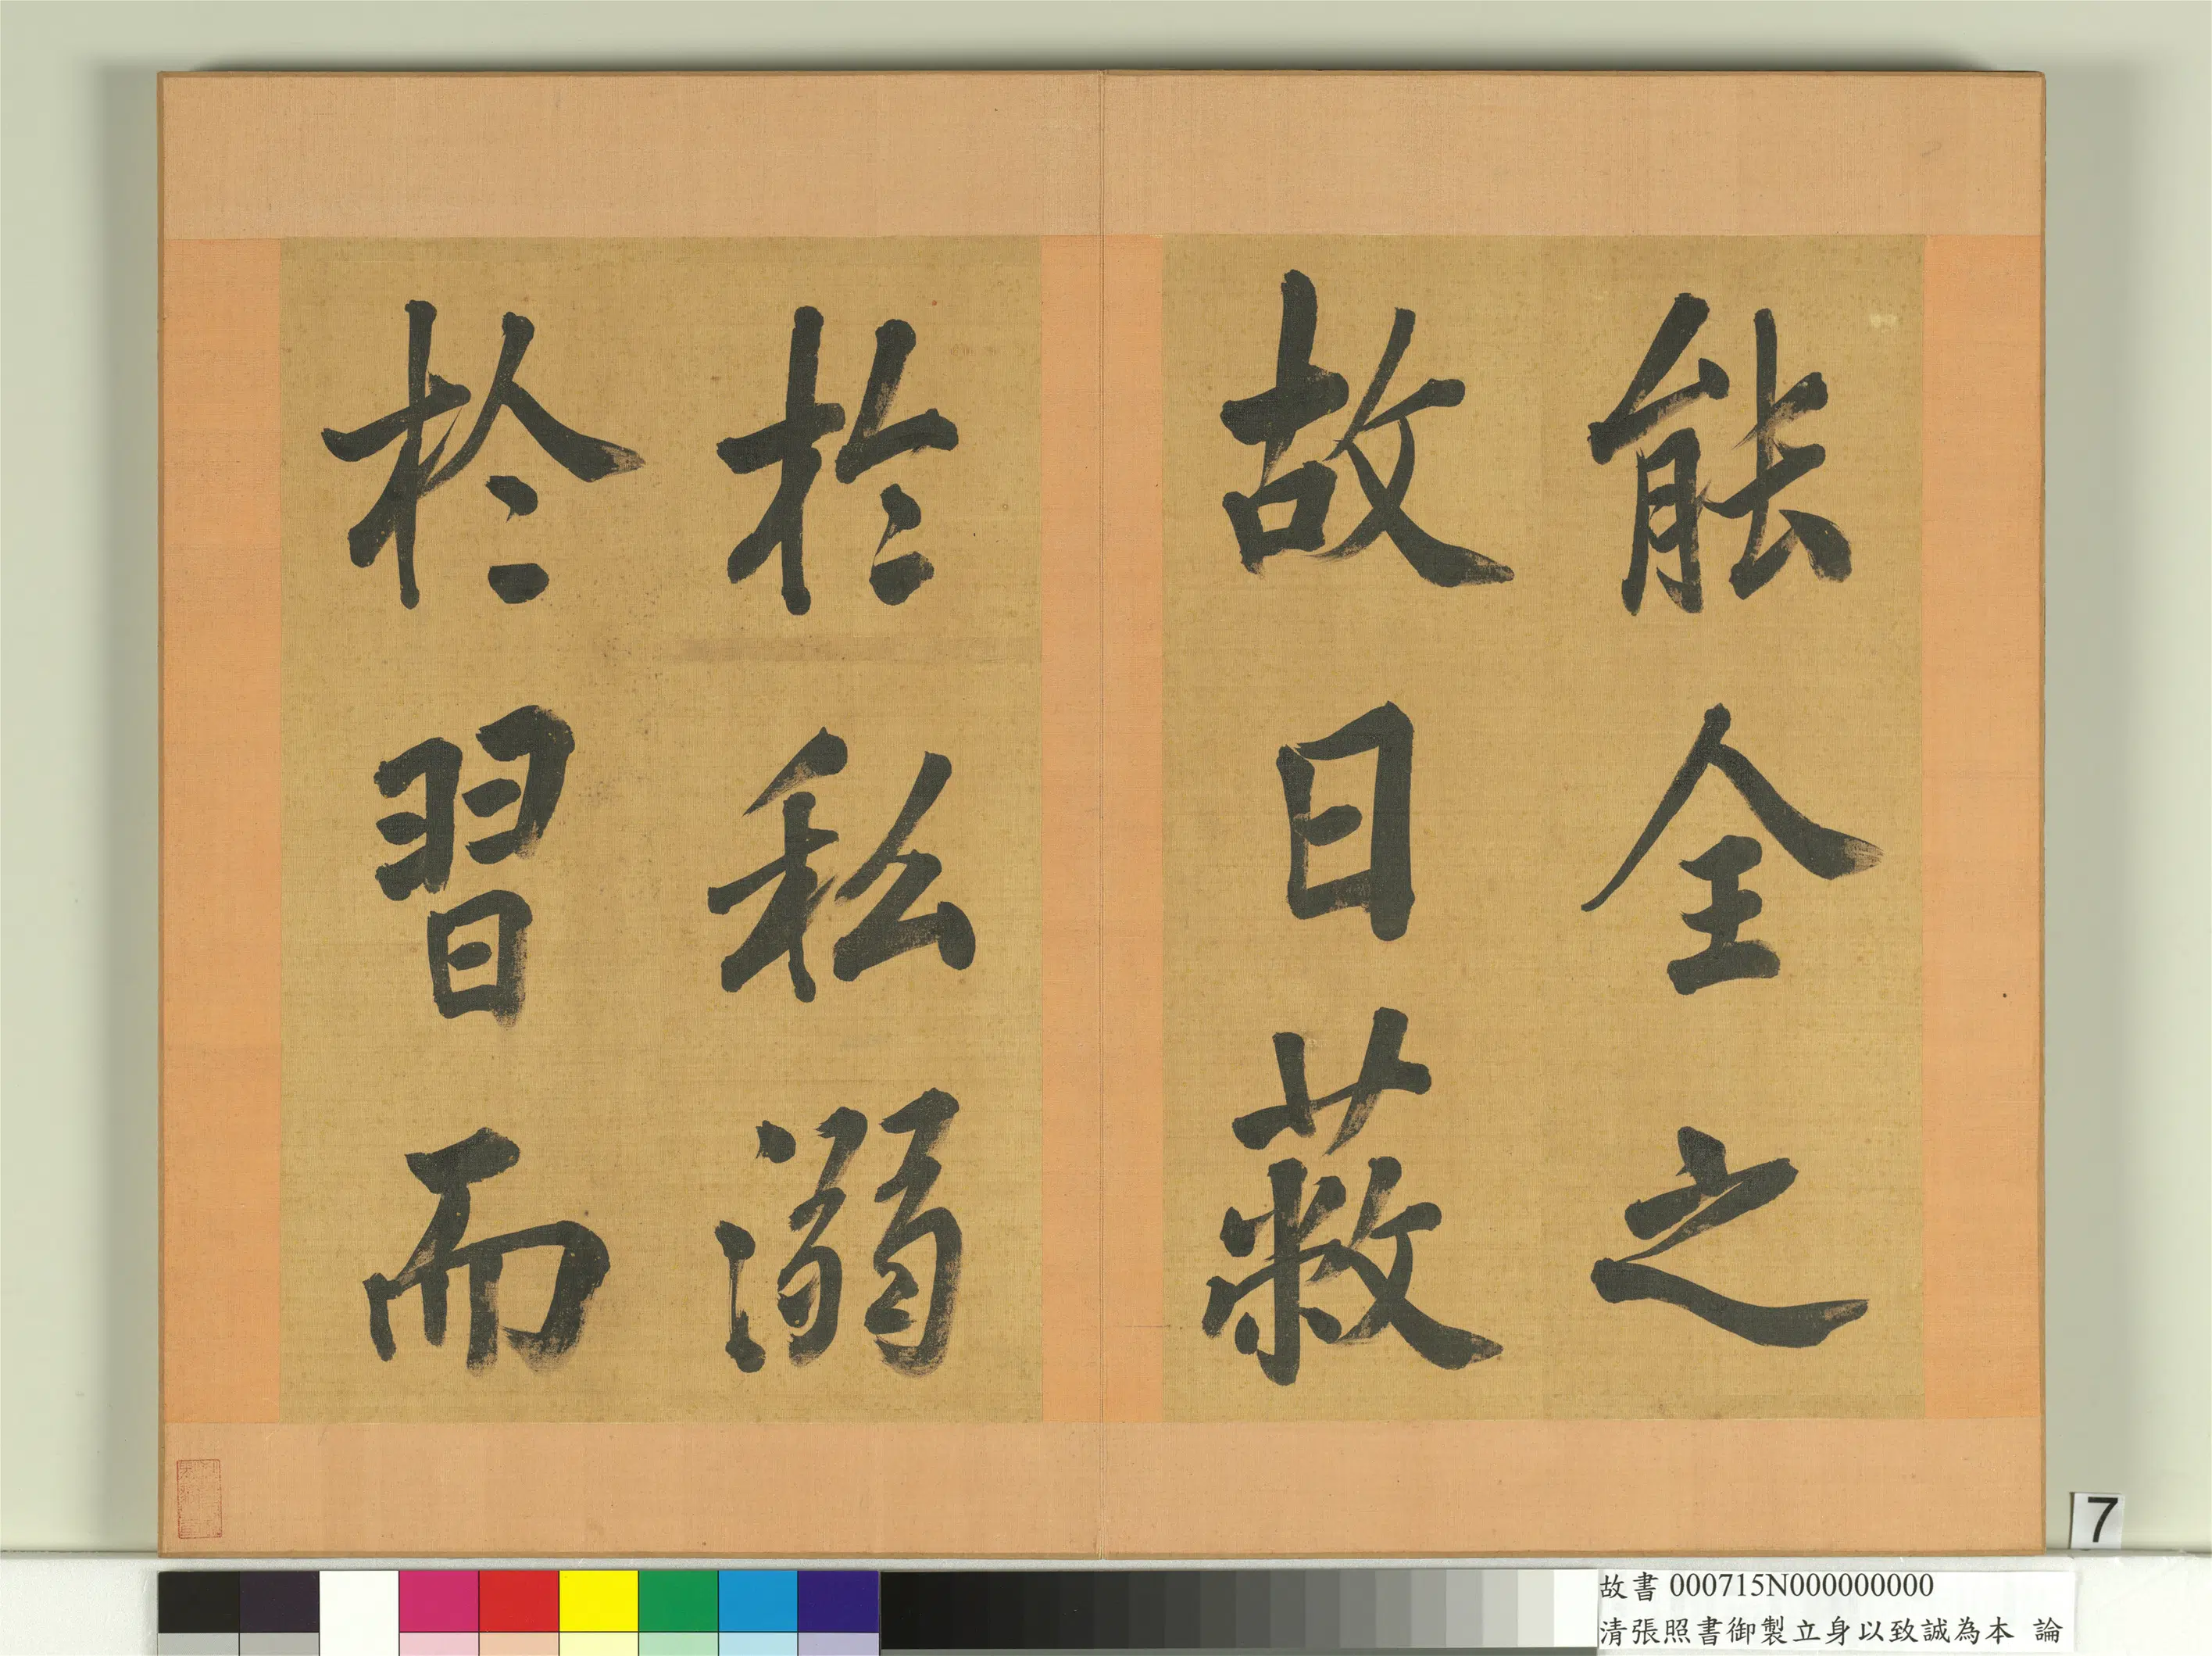 能全之
故日蔽
於私溺
於習而
7
故書 000715N000000000
清張照書御製立身以致誠為本 論